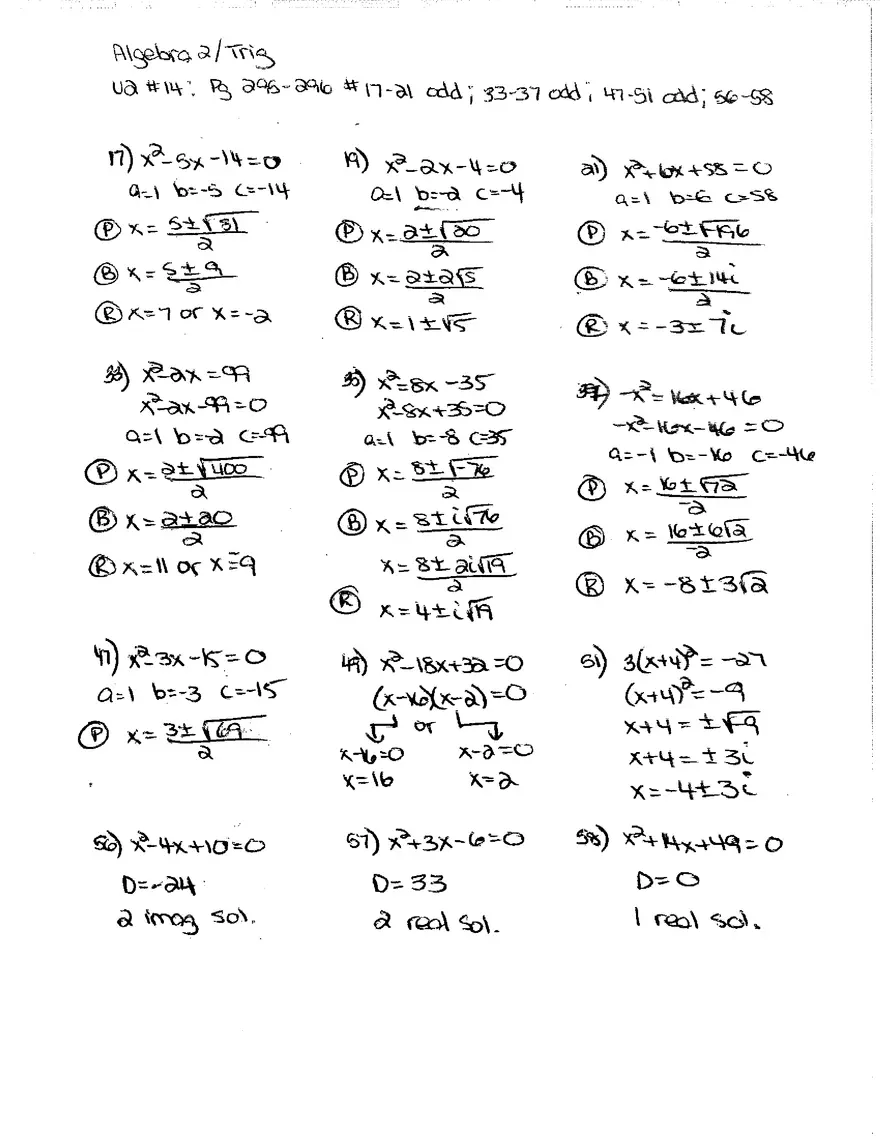 Algebra 2/Trig
U2 #14: Pg 295-296 #17-21 odd; 33-37 odd; 47-51 odd; 56-58
17) x²-5x-14=0
a=1 b=-5 c=-14
Ⓟ x= 5±√81 / 2
Ⓑ x= 5±9 / 2
Ⓡ x=7 or x=-2
19) x²-2x-4=0
a=1 b=-2 c=-4
Ⓟ x= 2±√20 / 2
Ⓑ x= 2±2√5 / 2
Ⓡ x=1±√5
21) x²+6x+58=0
a=1 b=6 c=58
Ⓟ x= -6±√-196 / 2
Ⓑ x= -6±14i / 2
Ⓡ x=-3±7i
33) x²-2x=99
x²-2x-99=0
a=1 b=-2 c=-99
Ⓟ x= 2±√400 / 2
Ⓑ x= 2±20 / 2
Ⓡ x=11 or x=-9
35) x²=8x-35
x²-8x+35=0
a=1 b=-8 c=35
Ⓟ x= 8±√-76 / 2
Ⓑ x= 8±i√76 / 2
x= 8±2i√19 / 2
Ⓡ x=4±i√19
37) -x²=16x+46
-x²-16x-46=0
a=-1 b=-16 c=-46
Ⓟ x= 16±√72 / -2
Ⓑ x= 16±6√2 / -2
Ⓡ x=-8±3√2
47) x²-3x-15=0
a=1 b=-3 c=-15
Ⓟ x= 3±√69 / 2
49) x²-18x+32=0
(x-16)(x-2)=0
or
x-16=0 x-2=0
x=16 x=2
51) 3(x+4)²=-27
(x+4)²=-9
x+4=±√-9
x+4=±3i
x=-4±3i
56) x²-4x+10=0
D=-24
2 imag sol.
57) x²+3x-6=0
D=33
2 real sol.
58) x²+14x+49=0
D=0
1 real sol.